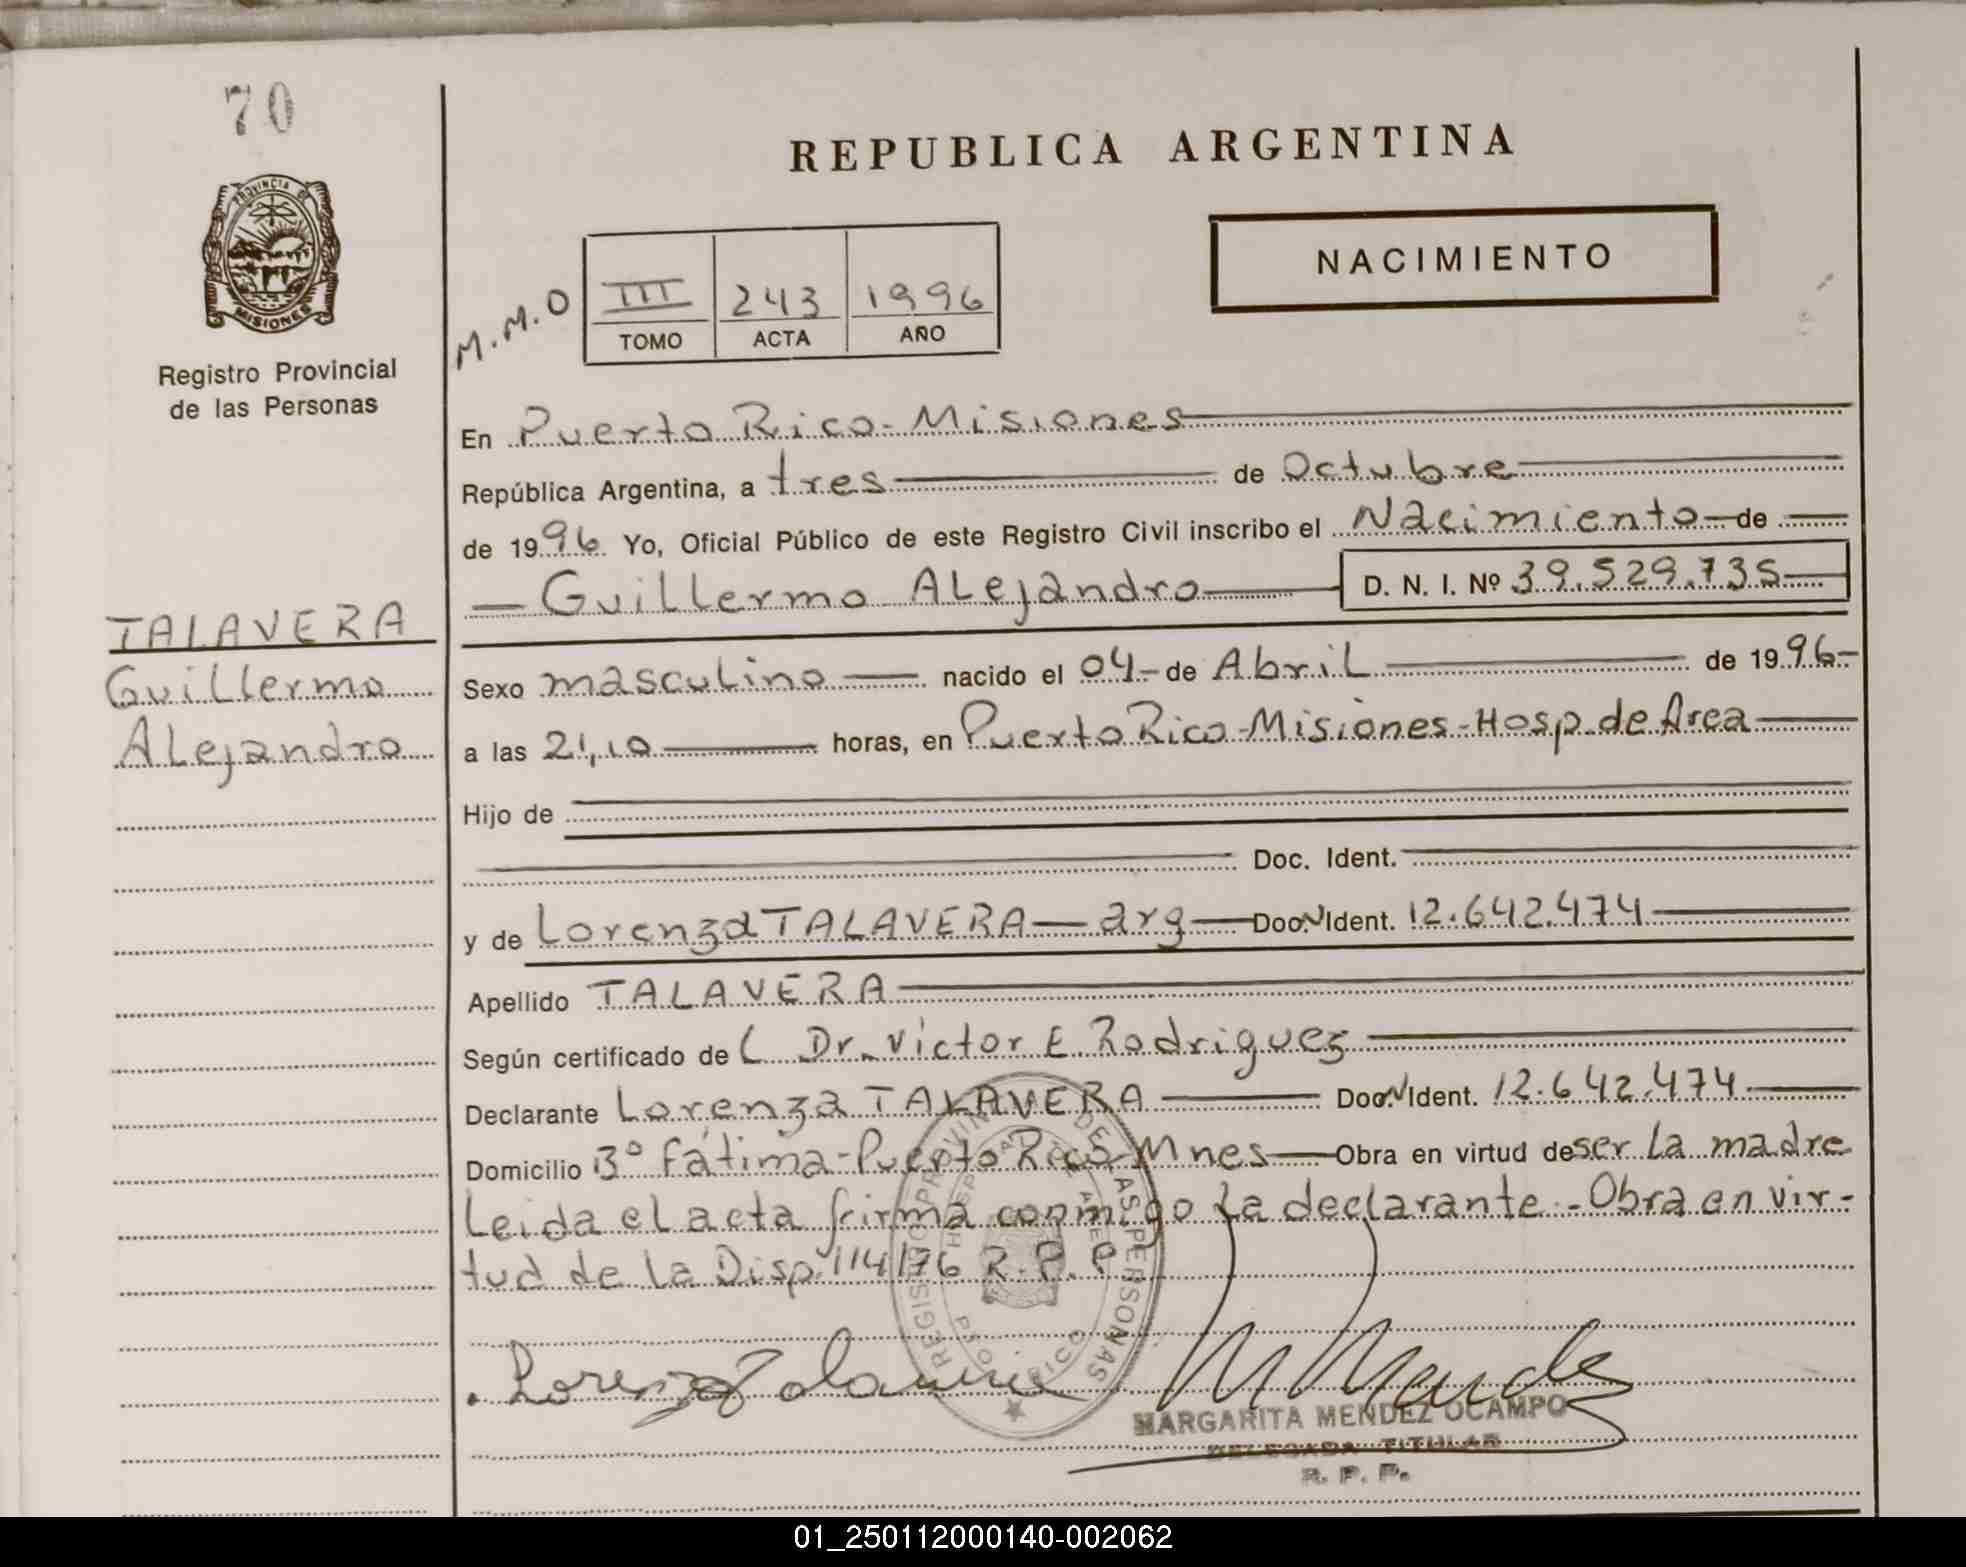 70
PROVINCIA DE
MISIONES
Registro Provincial
de las Personas
TALAVERA
Guillermo
Alejandro
REPUBLICA ARGENTINA
NACIMIENTO
M.M.O
III 243 1996
TOMO ACTA AÑO
En Puerto Rico - Misiones
República Argentina, a tres de Octubre
de 1996 Yo, Oficial Público de este Registro Civil inscribo el Nacimiento de
Guillermo Alejandro D. N. I. Nº 39.529.735
Sexo masculino nacido el 04 de Abril de 1996
a las 21,10 horas, en Puerto Rico - Misiones - Hosp. de Area
Hijo de
Doc. Ident.
y de Lorenza TALAVERA arg Ident. 12.642.474
Apellido TALAVERA
Según certificado de L Dr. Victor E Rodriguez
Declarante Lorenza TALAVERA Ident. 12.642.474
Domicilio Bº Fátima - Puerto Rico - Mnes Obra en virtud de ser la madre
Leida el acta firma conmigo la declarante - Obra en vir-
tud de la Disp. 114/76 R. P. P
REGISTRO PROVIN DE LAS PERSONAS
HOSPITAL DE AREA
PTO RICO
Lorenza Talavera M Mendez
MARGARITA MENDEZ OCAMPO
DELEGADA TITULAR
R. P. P.
01_250112000140-002062